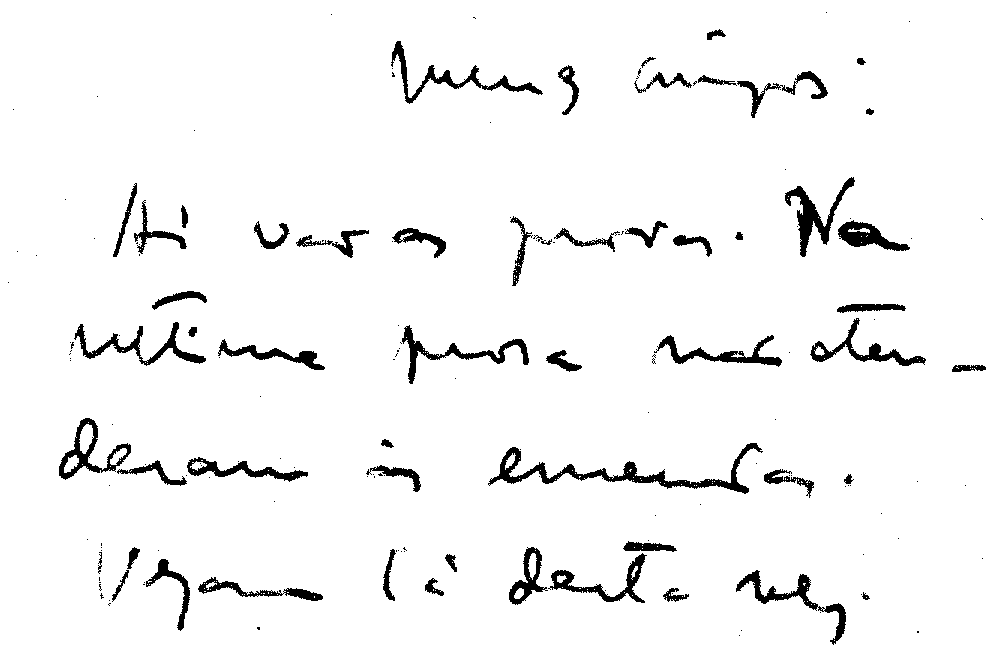 meus amigos:
Aí vão as provas. Na
última prova não aten-
deram às emendas.
Vejam lá desta vez.